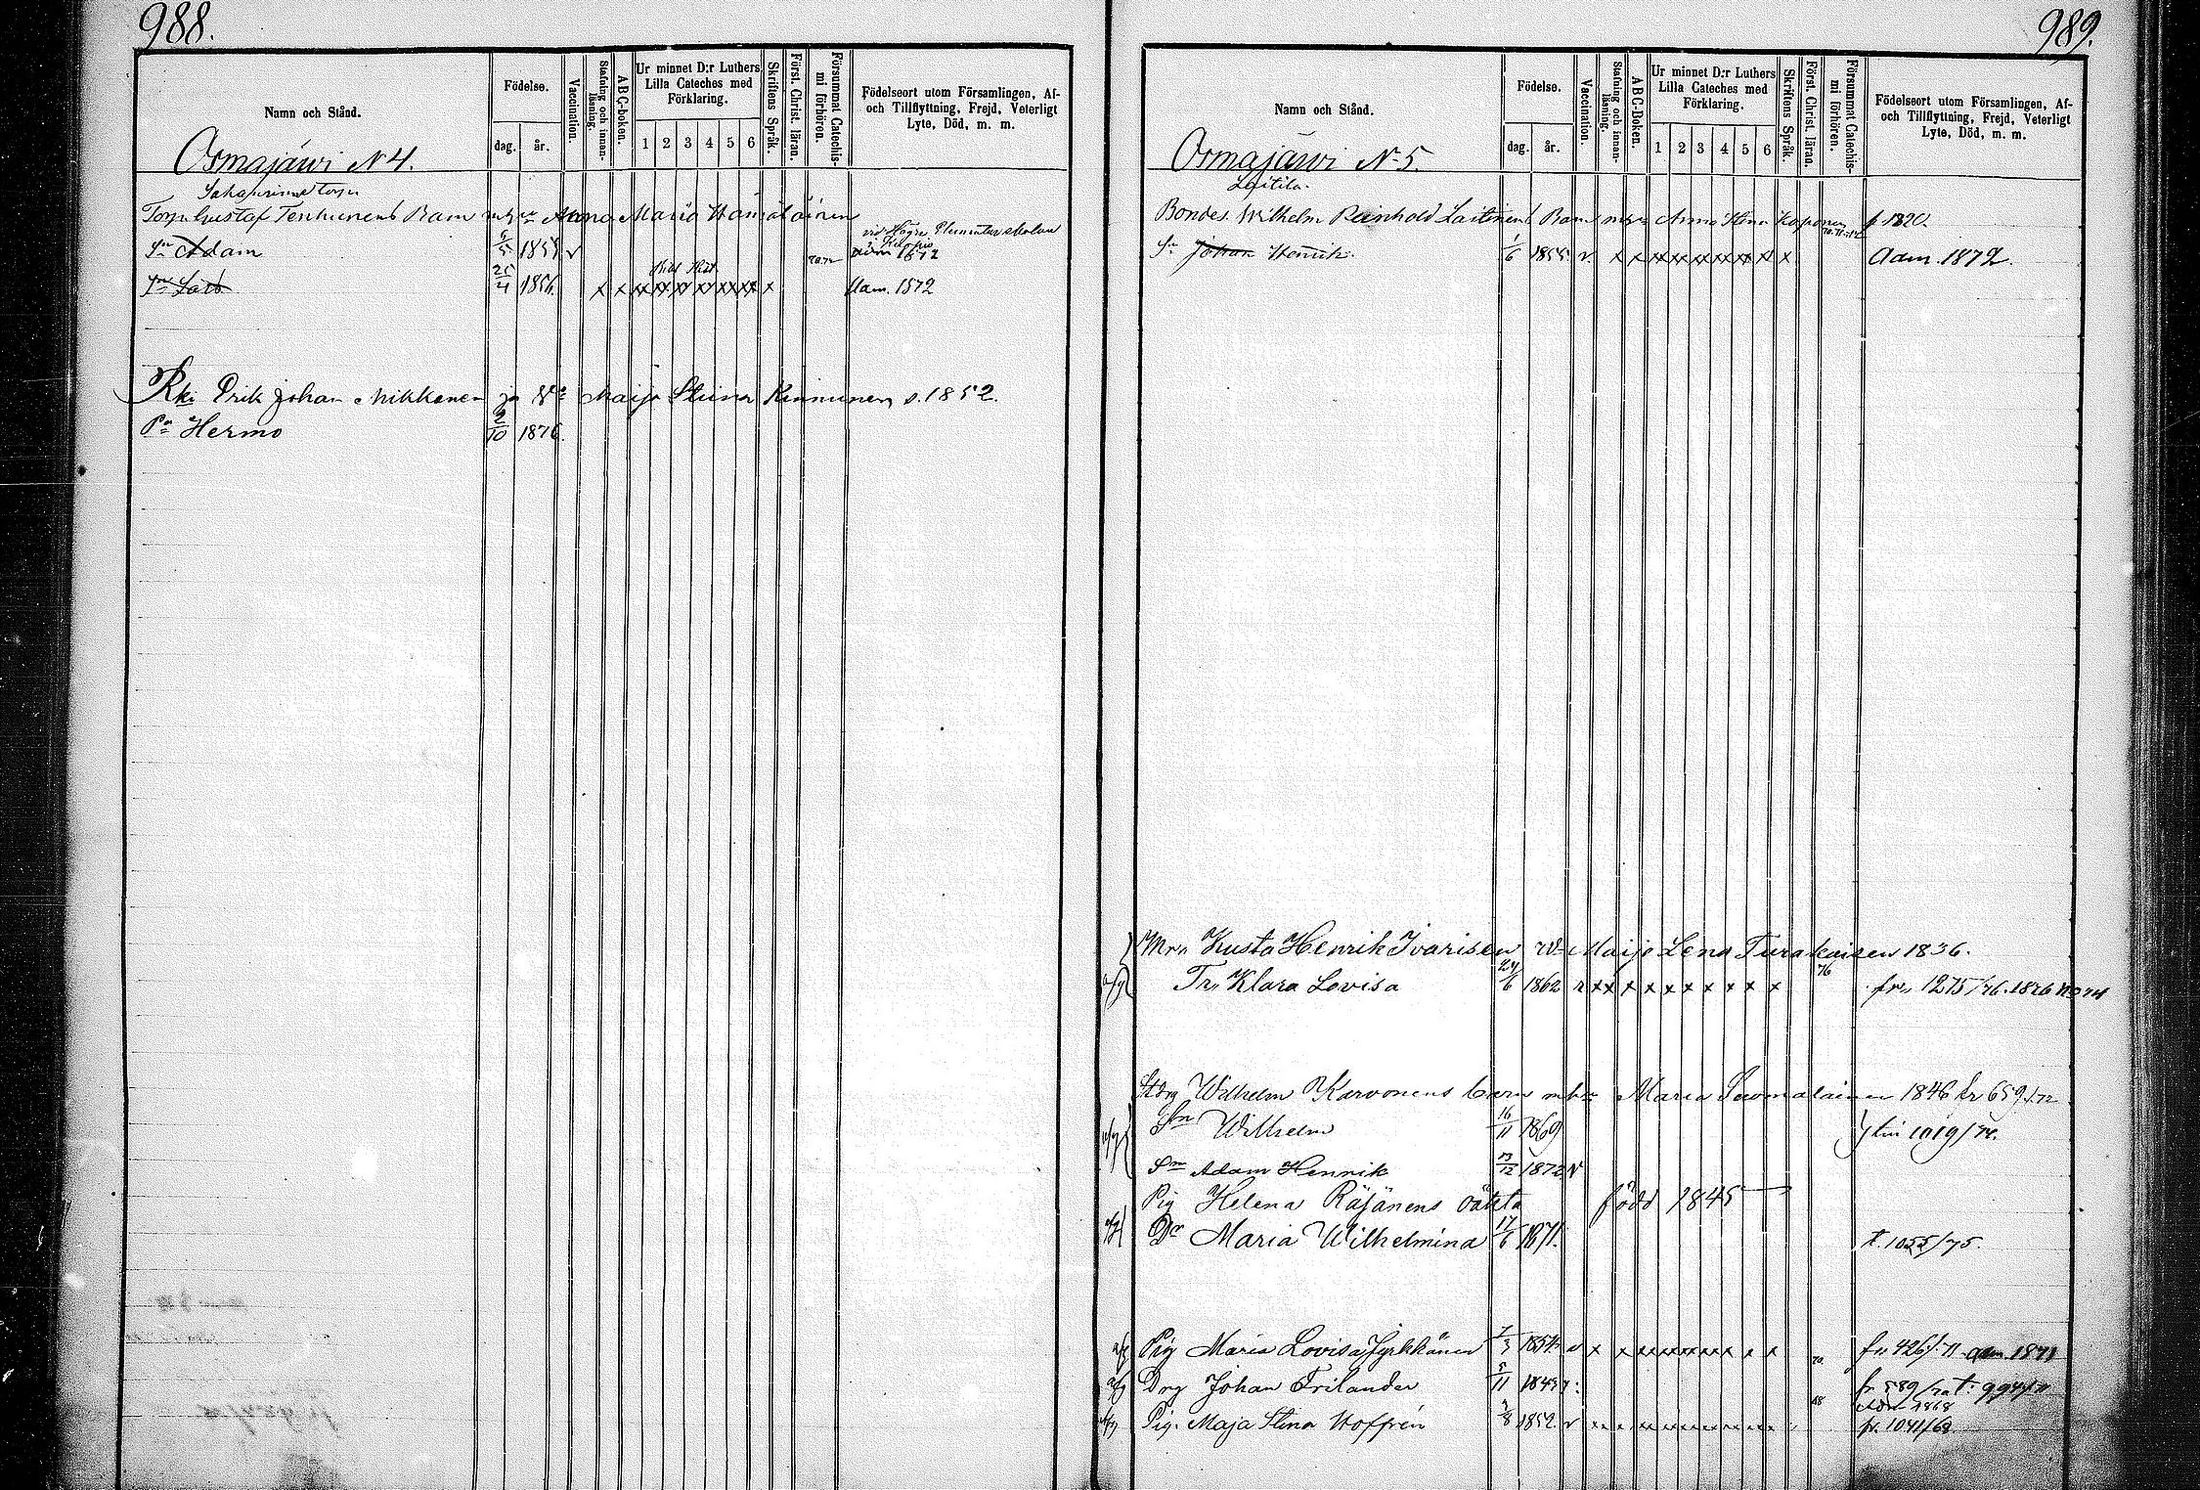 988.
Namn och Stånd.
Födelse.
dag.
år.
Vaccination.
Stafning och innanläsning.
ABC-boken.
Ur minnet D:r Luthers
Lilla Cateches med
Förklaring.
1 2 3 4 5 6
Skriftens Språk.
Först. Christ. läran.
Försummat Catechismi förhören.
Födelseort utom Församlingen, Af-
och Tillflyttning, Frejd, Veterligt
Lyte, Död, m. m.
Osmajärwi N 4.
Torp Gustaf Tenhunens Barn Anna Maria Hämäläinen
vid Högre Elementarskolan
i Kuopio
Sn Adam 5/5 1859 v 1872
Kid Hist
Sn Lars 25/4 1856 x x xx xx xx xx xx xx x Adm. 1872
Rki Erik Johan Mikkanen ja Vo Maija Stiina Kinnunen s. 1852.
Pa Hermo 2/10 1876.
989.
Namn och Stånd.
Födelse.
dag.
år.
Vaccination.
Stafning och innanläsning.
ABC-Boken.
Ur minnet D:r Luthers
Lilla Cateches med
Förklaring.
1 2 3 4 5 6
Skriftens Språk.
Först. Christ. läran.
Försummat Catechismi förhören.
Födelseort utom Församlingen, Af-
och Tillflyttning, Frejd, Veterligt
Lyte, Död, m. m.
Osmajärwi N 5.
Laitila.
Bonden Wilhelm Reinhold Laitinens Barn Anna Stina Koponen f 1820.
Sn Johan Henrik. 1/6 1855 v. x x xx xx xx xx xx xx x Adm. 1872.
Mrn Kusta Henrik Ivarisen Maija Lena Turakaisen 1836.
76
Tr. Klara Lovisa 24/6 1862 x x x x x x x x x fr. 1275/76.
Wilhelm Karvonens barn Maria Suomalainen 1846 fr 659/72
Sn Wilhelm 16/11 1869 1019/74.
Sn Adam Henrik 13/12 1872 v
Pig Helena Räjänens oäkta född 1845
Dr Maria Wilhelmina 17/6 1871. t. 1055/75.
Pig Maria Lovisa Jyrkkänen 7/3 1854 v x x xx xx xx x x x 70 fr. 426/71 adm 1871
Drg Johan Frilander 5/11 1843 fr 589/70 t: 994/71
Pig. Maja Stina Hoffrén 2/8 1852 v 68 Adm 1868
fr. 1041/68